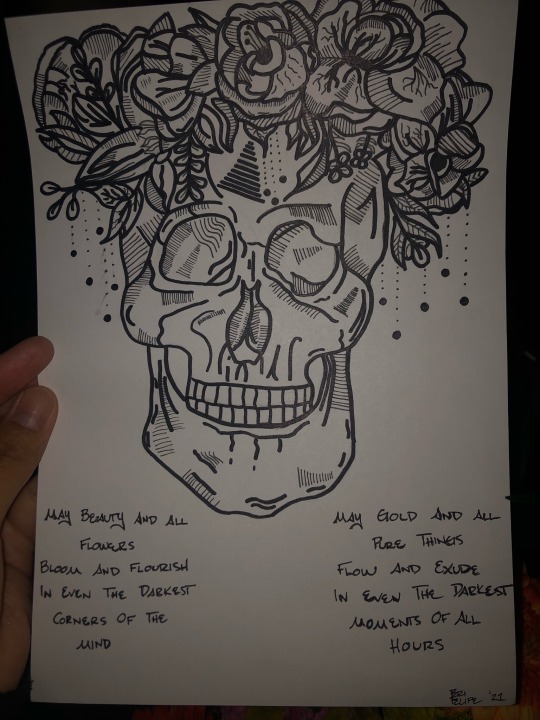 MAY BEAUTY AND ALL
FLOWERS
BLOOM AND FLOURISH
IN EVEN THE DARKEST
CORNERS OF THE
MIND
MAY GOLD AND ALL
PURE THINGS
FLOW AND EXUDE
IN EVEN THE DARKEST
MOMENTS OF ALL
HOURS
FELIPE '21